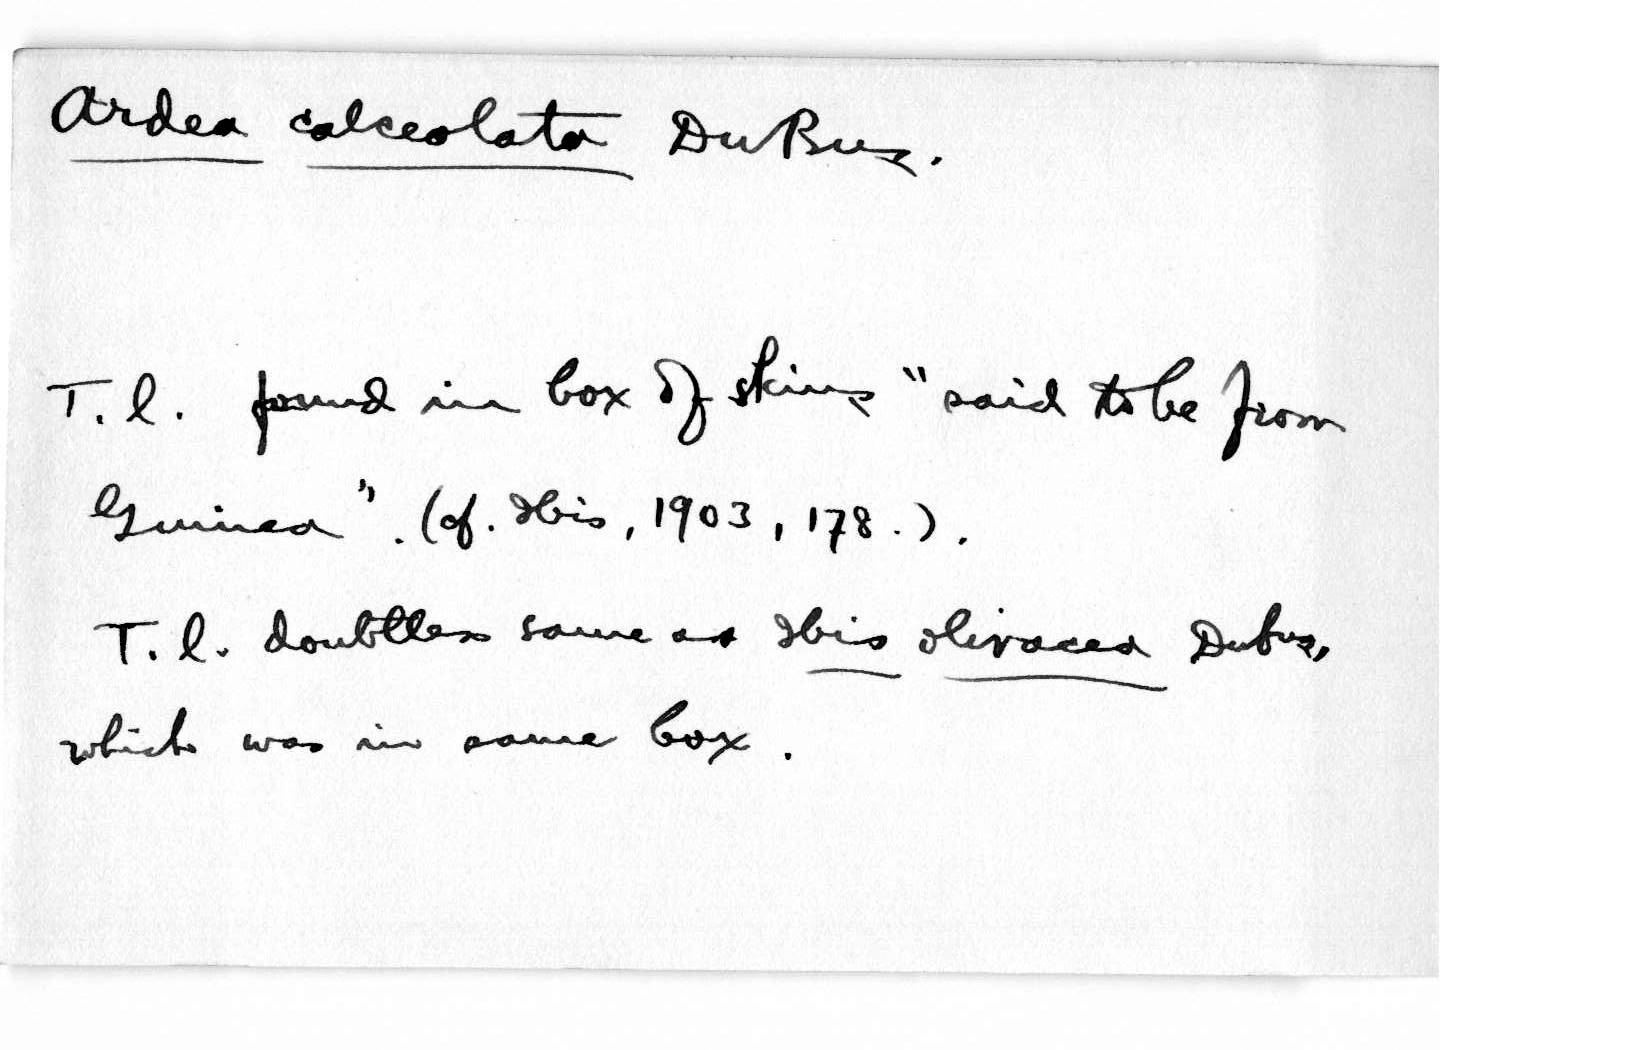 Ardea calceolata DuBus.
T. l. found in box of skins "said to be from
Guinea". (cf. Ibis, 1903, 178.).
T. l. doubtless same as Ibis olivacea Dubus,
which was in same box.